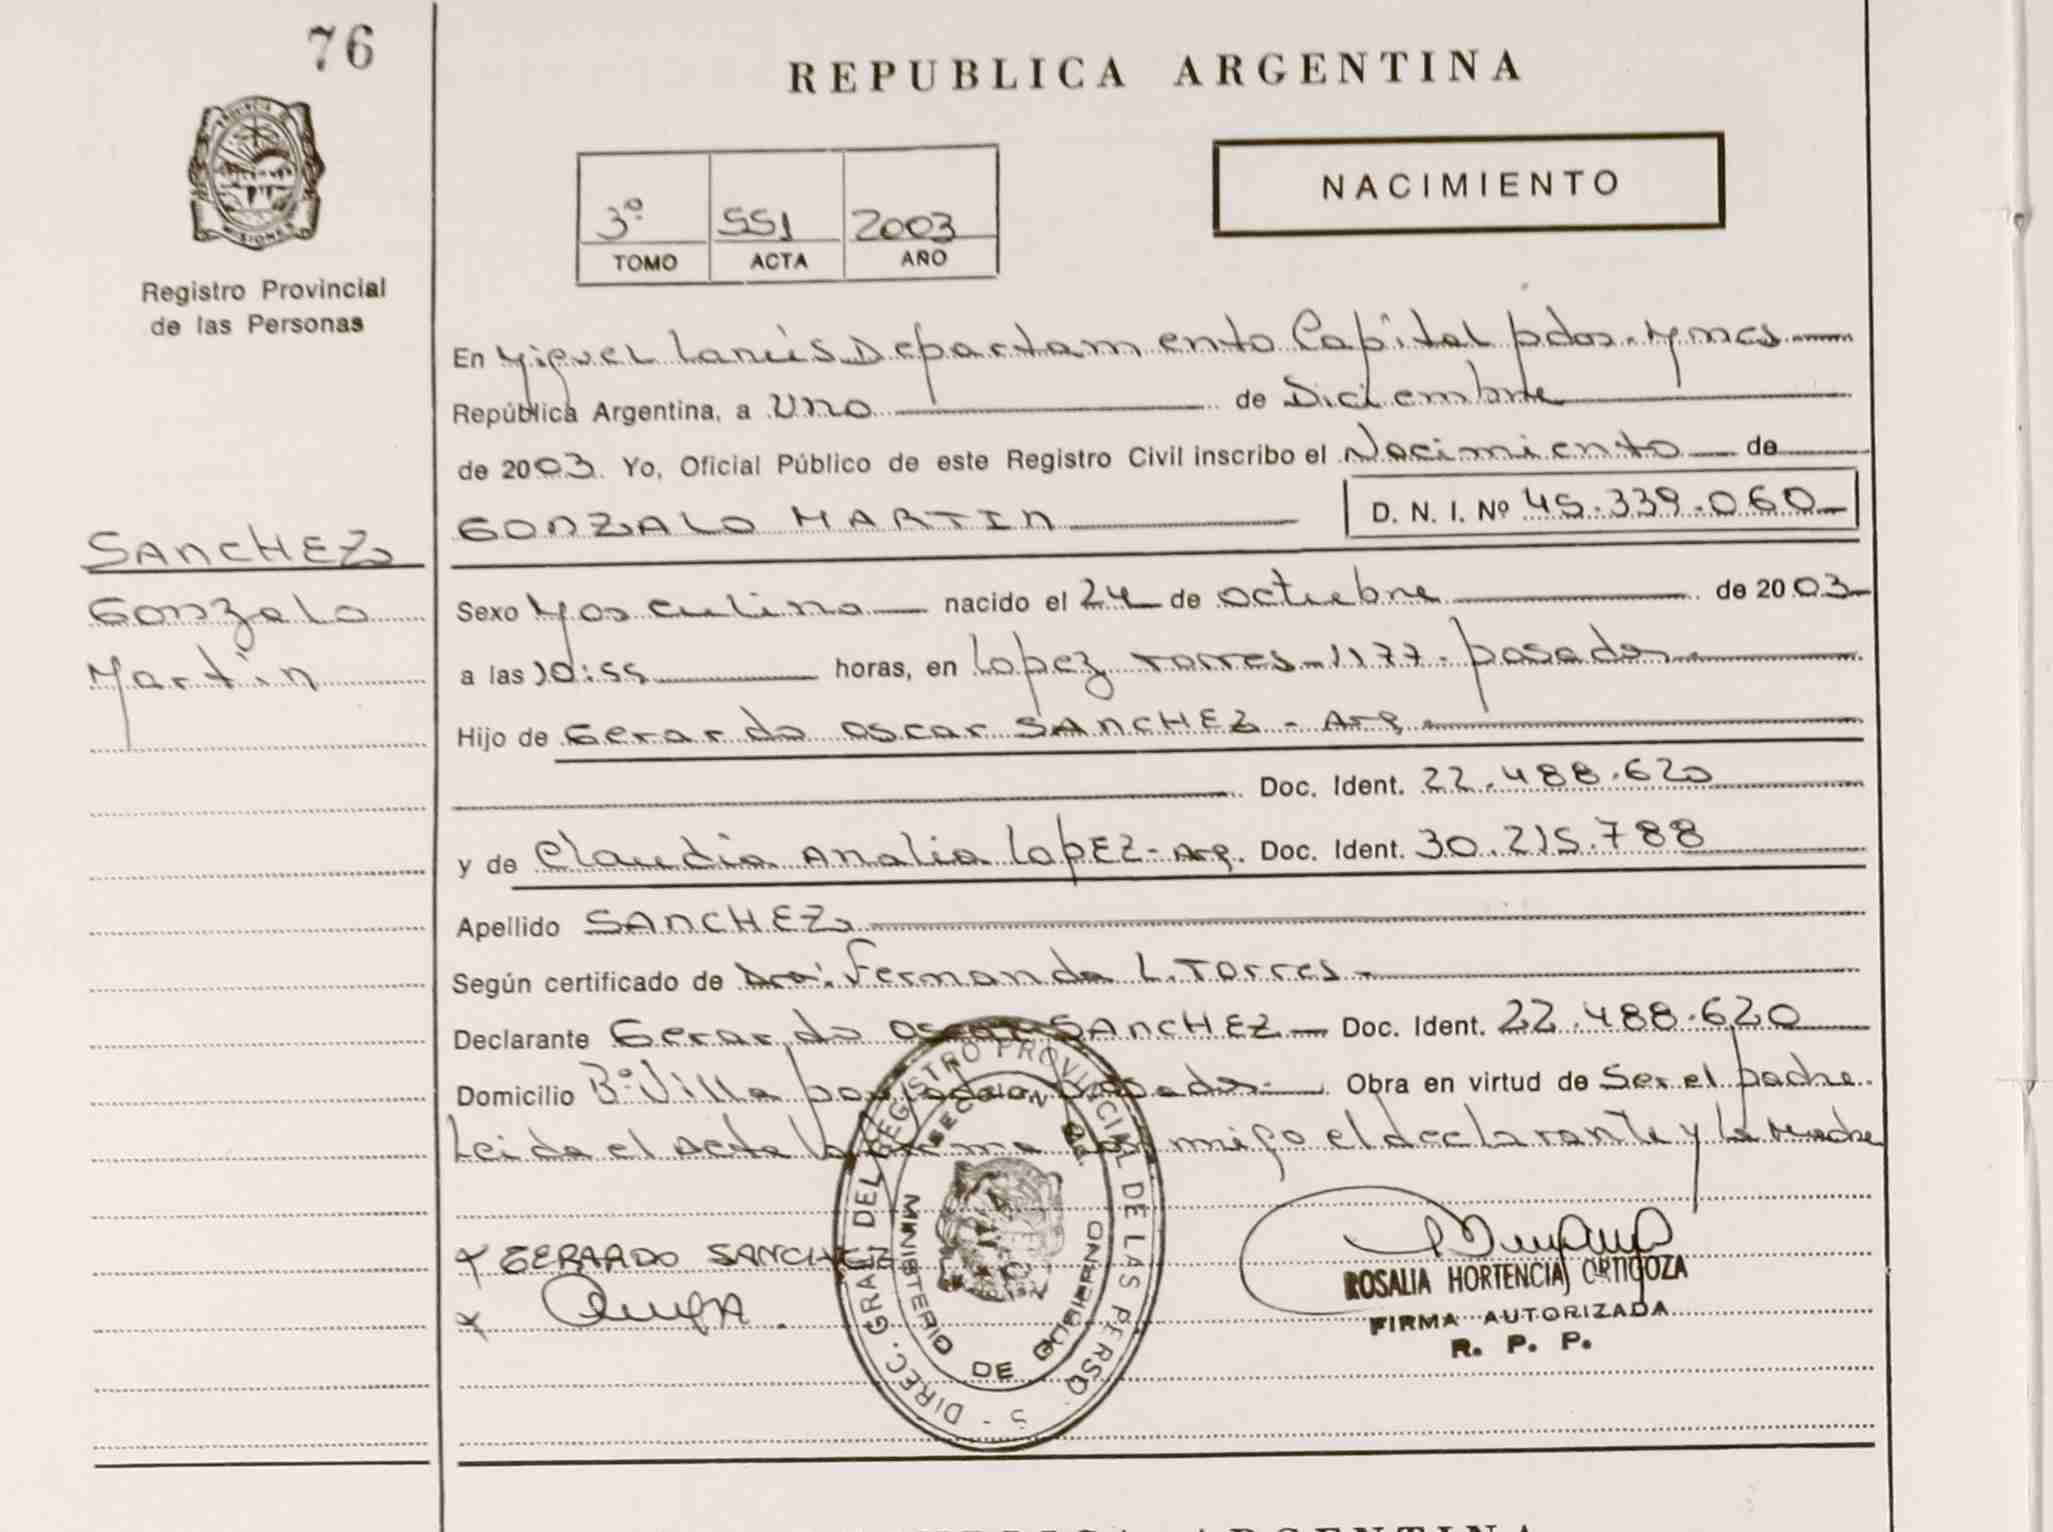 76
REPUBLICA ARGENTINA
PROVINCIA DE
MISIONES
Registro Provincial
de las Personas
3º 551 2003
TOMO ACTA AÑO
NACIMIENTO
En Miguel Lanús Departamento Capital pdas. Mnes
República Argentina, a Uno de Diciembre
de 2003. Yo, Oficial Público de este Registro Civil inscribo el Nacimiento de
GONZALO MARTIN D. N. I. Nº 45.339.060
SANCHEZ
Gonzalo
Martin
Sexo Masculino nacido el 24 de octubre de 2003
a las 10:55 horas, en Lopez Torres-1177-posadas
Hijo de Gerardo Oscar SANCHEZ - Arg
Doc. Ident. 22.488.620
y de Claudia Analia LopEZ - Arg. Doc. Ident. 30.215.788
Apellido SANCHEZ
Según certificado de Dra. Fernanda L. Torres
Declarante Gerardo Oscar SANCHEZ Doc. Ident. 22.488.620
Domicilio Bº Villa posadas Obra en virtud de Ser el padre
Leida el acta la firma conmigo el declarante y la Madre
X GERARDO SANCHEZ
X
DIREC. GRAL. DEL REGISTRO PROVINCIAL DE LAS PERSO S
MINISTERIO DE GOBIERNO
ROSALIA HORTENCIA ORTIGOZA
FIRMA AUTORIZADA
R. P. P.